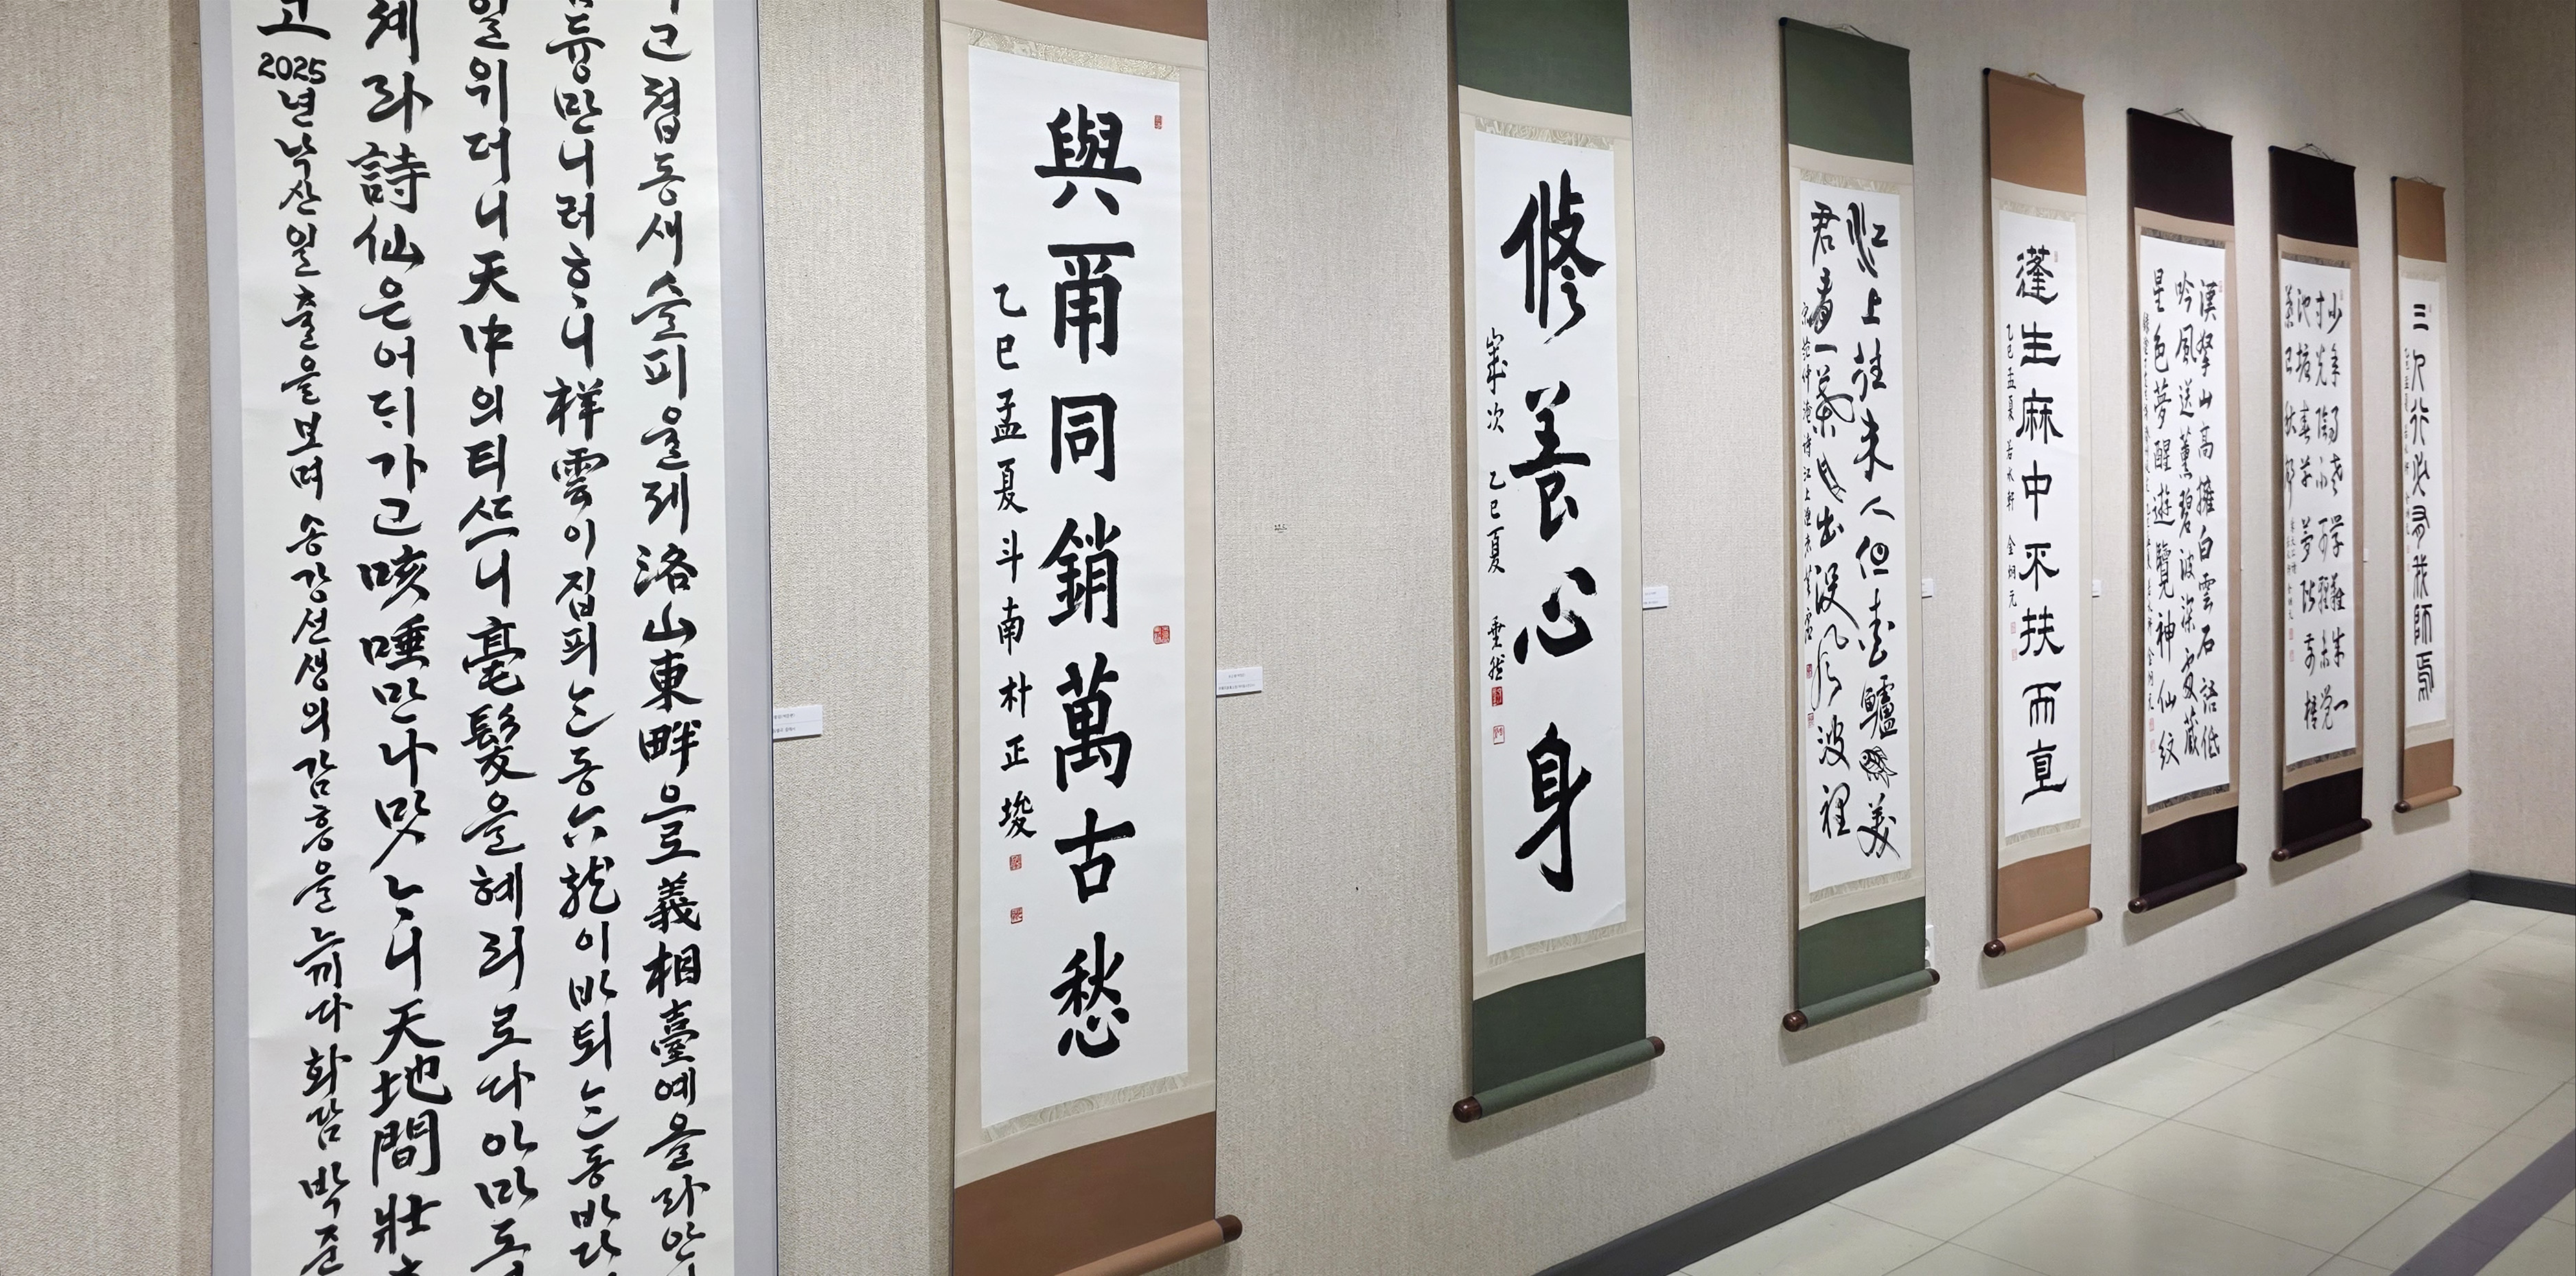 고 졉동새 슬피 울 제 洛山東畔으로 義相臺예 올라 안
듕만 니러ᄒᆞ니 祥雲이 집픠는 동 六龍이 바퇴는 동 바다
일위더니 天中의 티ᄯᅳ니 毫髮을 혜리로다 아마도
혜라 詩仙은 어ᄃᆡ 가고 咳唾만 나맛ᄂᆞ니 天地間 壯
고 2025년 낙산 일출을 보며 송강선생의 감흥을 느끼다 화감 박준
與爾同銷萬古愁
乙巳孟夏 斗南 朴正埈
修養心身
歲次 乙巳夏
江上往來人但愛鱸魚美
君看一葉舟出沒風波裡
范仲淹詩江上漁者
蓬生麻中不扶而直
乙巳孟夏 若水軒 金炯元
漢拏山高擁白雲石語低
吟風送薰碧波深處藏
星色夢醒遊覽神仙紋
少年易老學難成一
寸光陰不可輕未覺
池塘春草夢階前梧
葉已秋聲
三人行必有我師焉